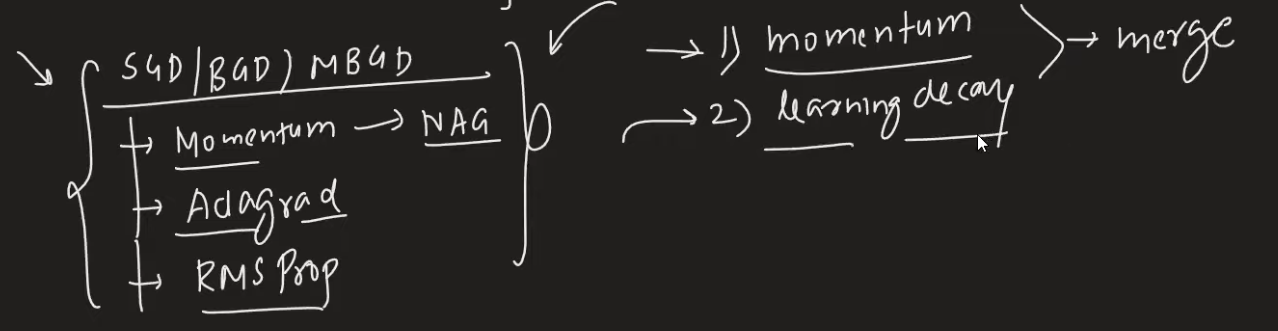 SGD/BGD/MBGD
Momentum → NAG
Adagrad
RMSProp
→ 1) momentum
→ 2) learning decay
→ merge